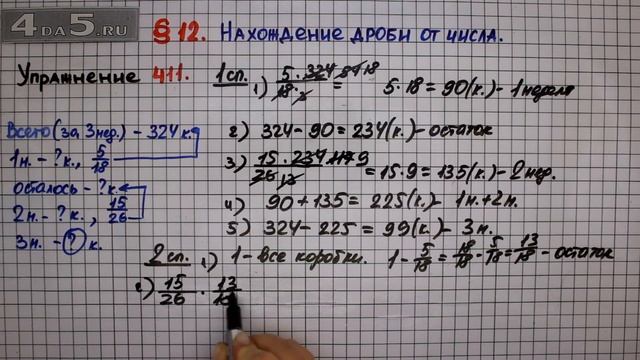 4DA5.RU
§ 12. Нахождение дроби от числа.
Упражнение 411.
1сп. 1) 5 · 324 54 18 / 18 · 3 = 5 · 18 = 90(к.) - 1 неделя
Всего (за 3 нед.) - 324 к.
1н. - ? к., 5/18
осталось - ? к.
2н. - ? к., 15/26
3н. - ? к.
2) 324 - 90 = 234(к.) - остаток
3) 15 · 234 117 9 / 26 13 = 15 · 9 = 135(к.) - 2 нед.
4) 90 + 135 = 225(к.) - 1н. + 2н.
5) 324 - 225 = 99(к.) - 3н.
2сп. 1) 1 - все коробки. 1 - 5/18 = 18/18 - 5/18 = 13/18 - остаток
2) 15/26 · 13/18